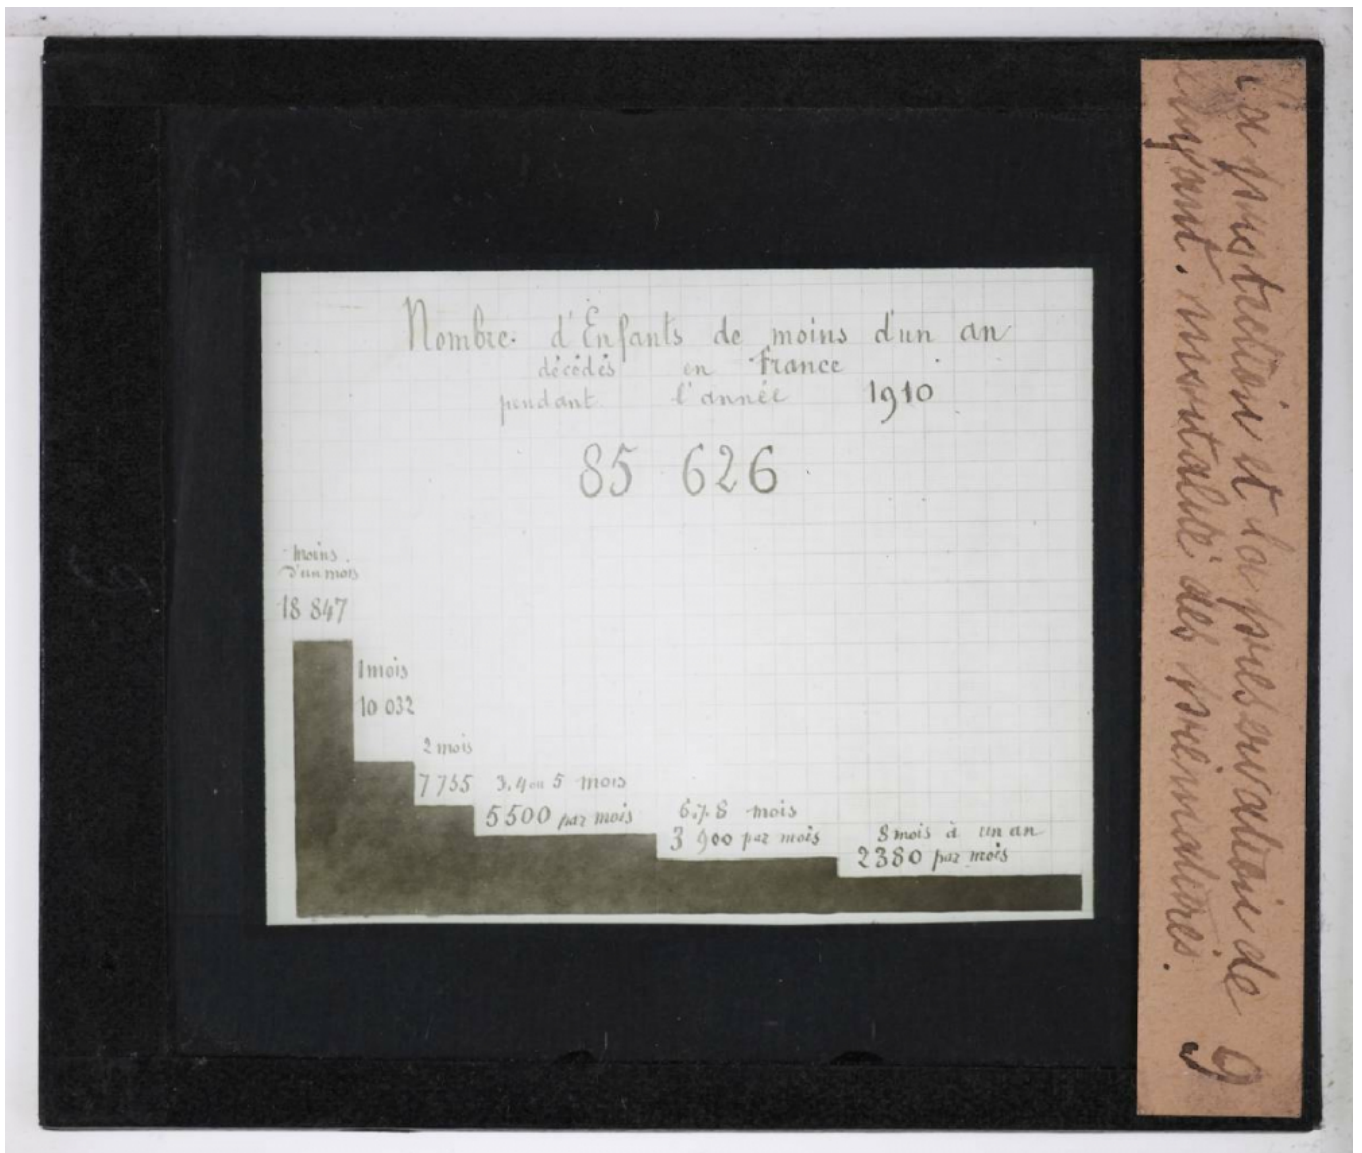 Nombre d'Enfants de moins d'un an
décédés en France
pendant l'année 1910
85 626
moins
d'un mois
18 847
1 mois
10 032
2 mois
7 755
3. 4 ou 5 mois
5 500 par mois
6. 7. 8 mois
3 900 par mois
8 mois à un an
2380 par mois
La protection et la préservation de
l'enfant. mortalité des prématurés.
9